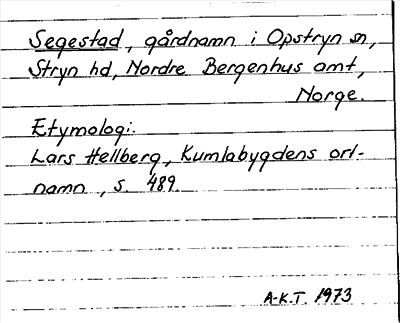 Segestad, gårdnamn i Opstryn sn,
Stryn hd, Nordre Bergenhus amt,
Norge.
Etymologi:
Lars Hellberg, Kumlabygdens ort-
namn, s. 489.
A-K.T. 1973